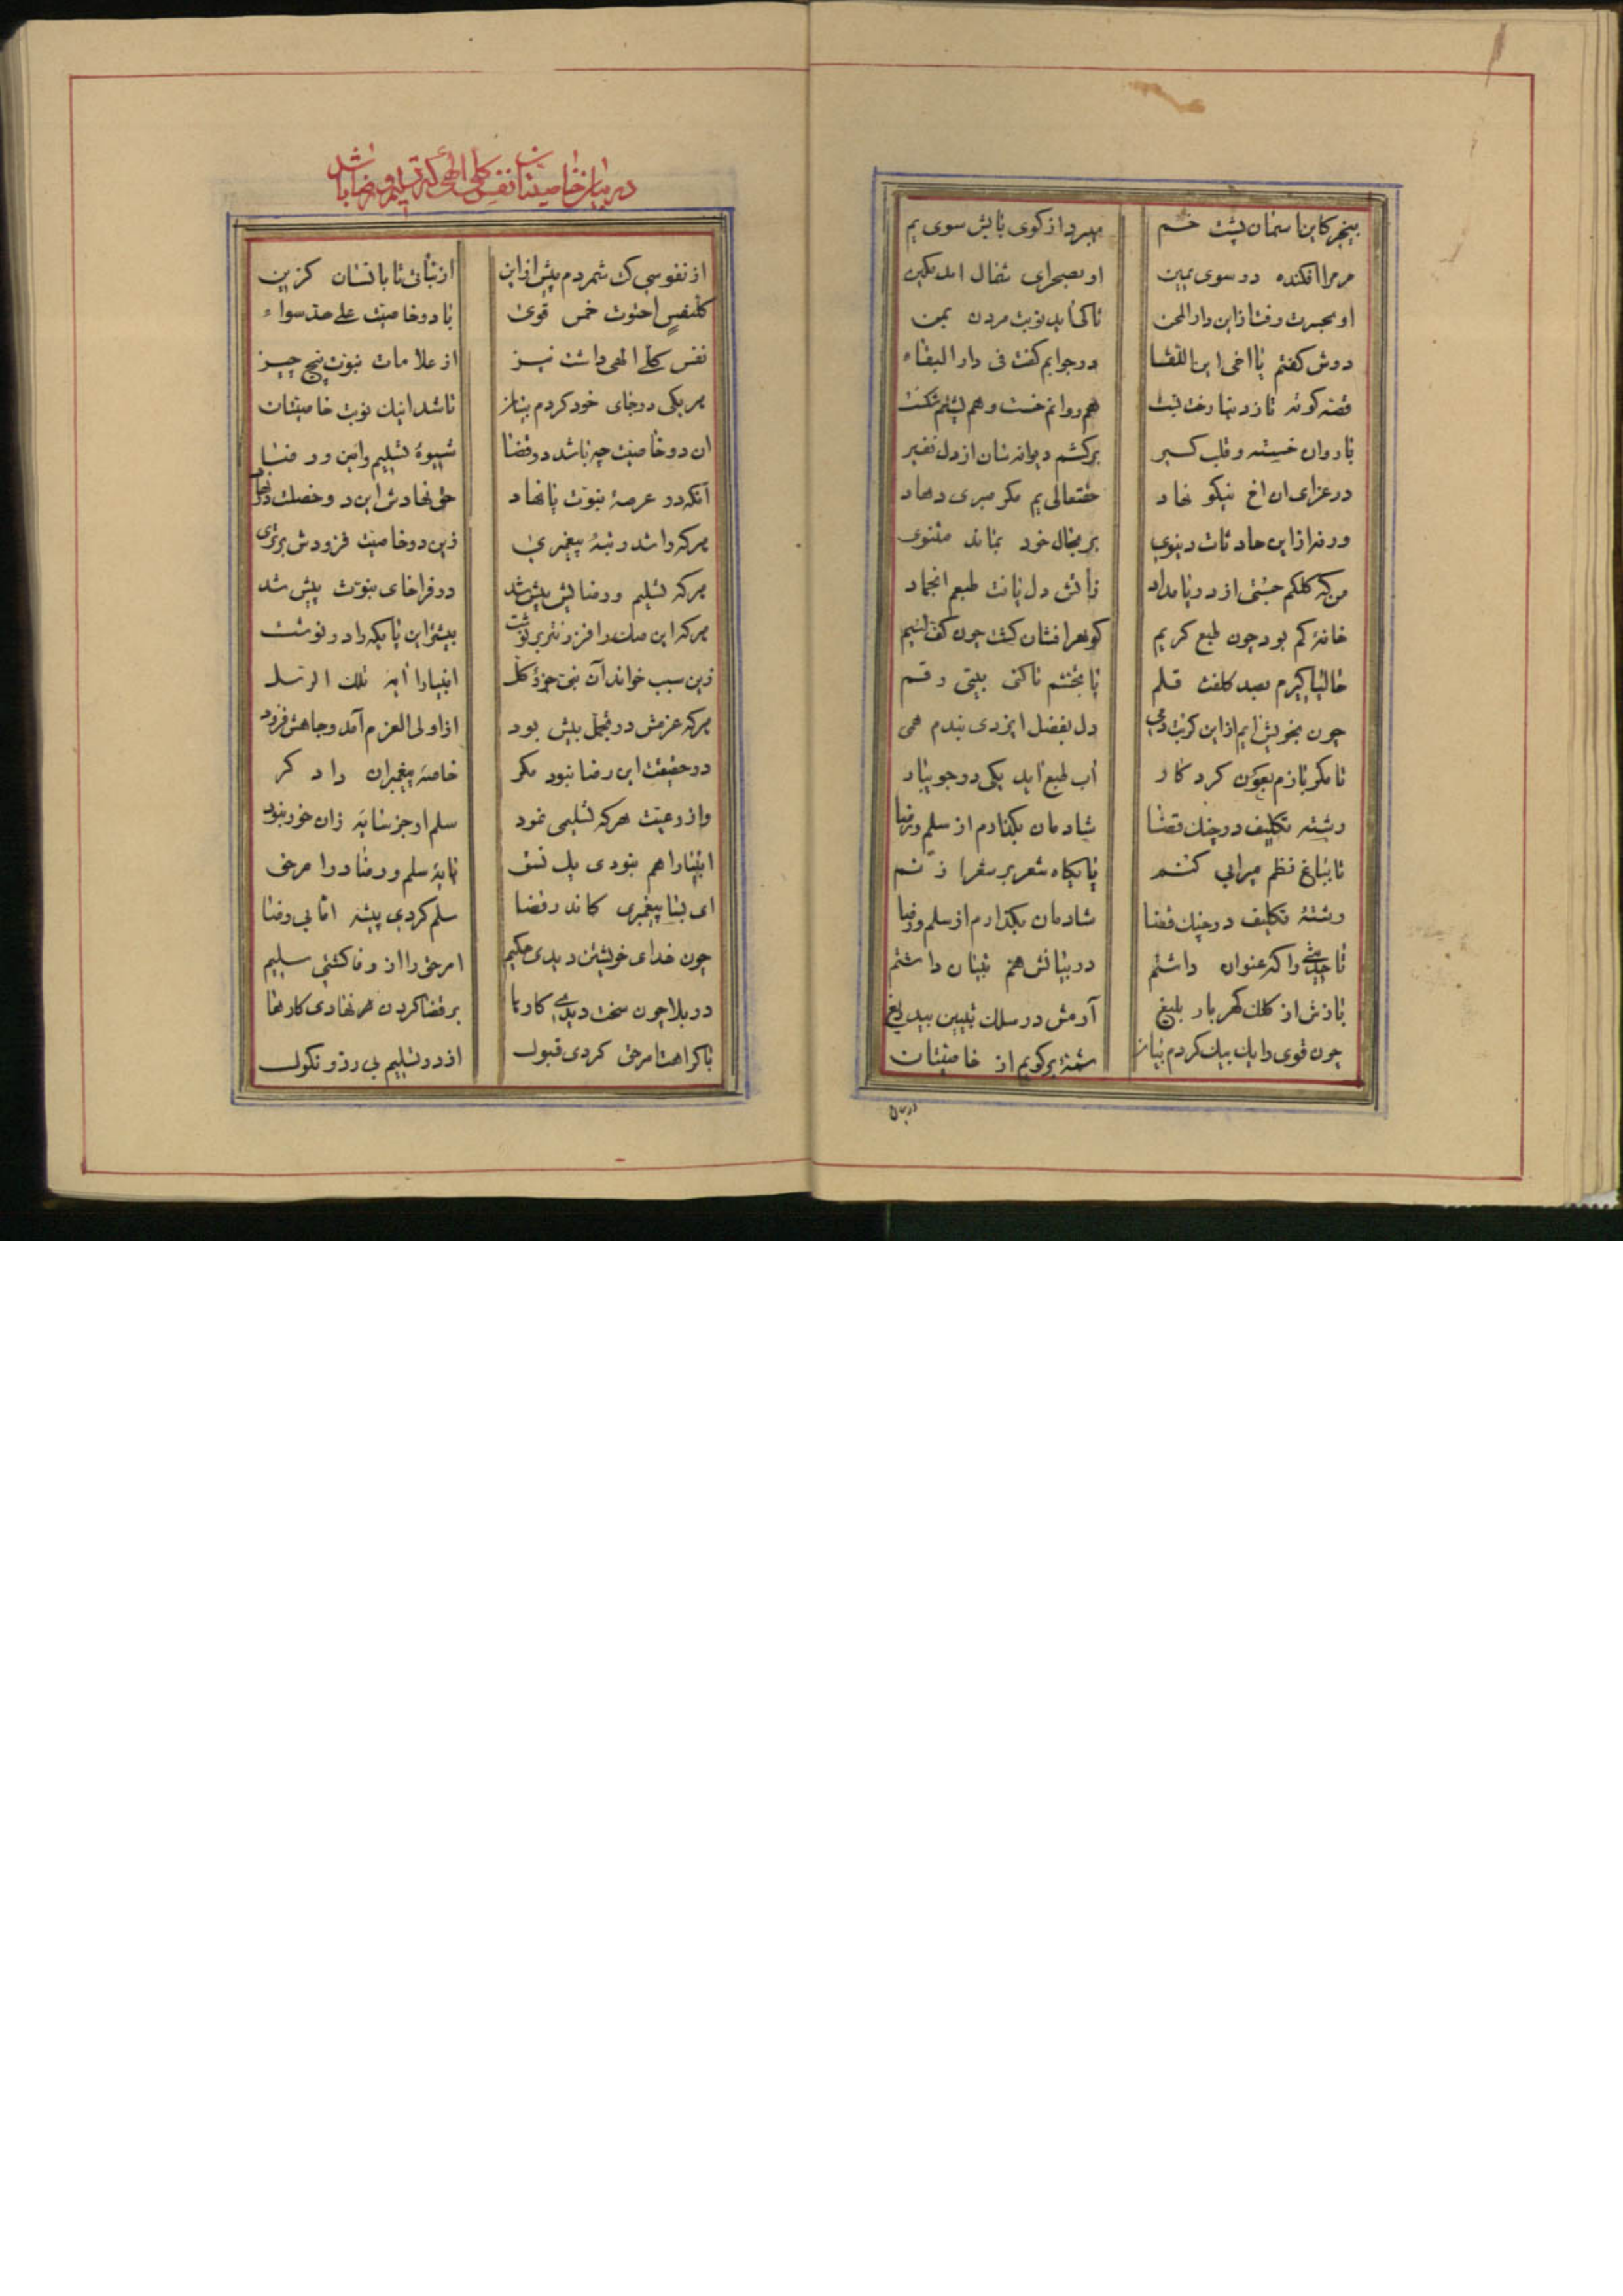 بیخبر کاین اسمان پشت خم
میبرد از کوی بابش سوی یم
مر مرا افکنده در سوی یمین
او بصحرای شمال اندر کمین
او بحسرت رفت از این دار المحن
تا کی آید نوبت مردن بمن
دوش گفتم یا اخی این اللقا
در جوابم گفت فی دار البقاء
قصه کوته تا ز دنیا رخت بست
هم روانم خست و هم پشتم شکست
با روان خسته و قلب کسیر
برکشم دیوانه‌سان از دل نفیر
در عزای ان اخ نیکو نهاد
حقتعالی یم مگر صبری دهاد
ورنه از این حادثات دنیوی
بر مجال خود بماند مثنوی
من که کلکم جستی از دریا مداد
زآتش دل یافت طبعم انجماد
خانهٔ کم بود چون طبع کریم
گوهر افشان گشت چون کف
حالیا گیرم بصد کلفت قلم
تا بختم تا کنی بیتی رقم
چون بخویش آیم از این کربت دمی
دل بفضل ایزدی بندم همی
تا مگر بازم بعون کردگار
آب طبع آید یکی در جویبار
رشته تکلیف در چنک قضا
شادمان بگذارم از سلم و رضا
تا بباغ نظم میرابی کنم
پایگاه شعر بر شعرا زنم
رشتهٔ تکلیف در چنک قضا
شادمان بگذارم از سلم و رضا
تا حدیثی را که عنوان داشتم
در بیانش هم بنیان داشتم
بازش از کلک گهربار بلیغ
آرمش در سلک تبیین بیدریغ
چون قوی را یک بیک کردم بیان
شمهٔ برگویم از خاصیتان
در بیان
در بیان خاصیتان نفس کلی الهی که تسلیم و رضا باشد
از نفوسی کت شمردم پیش از این
از نباتی تا بانسان گزین
کلنفس احتوت خمس قوی
با دو خاصیت علی حد سواء
نفس کلی الهی داشت نیز
از علامات نبوت پنج چیز
هر یکی در جای خود کردم بیان
تا شد اینک نوبت خاصیتان
ان دو خاصیت چه باشد در قضا
شیوهٔ تسلیم و آیین رضا
آنکه در عرصهٔ نبوت پا نهاد
حق نهادش این دو خصلت در نهاد
هر که را شد رتبهٔ پیغمبری
زین دو خاصیت فزودش برتری
هر که تسلیم و رضایش بیش شد
در فراخای نبوت پیش شد
هر که این مسلک را فزونتر بر نوشت
بیشتر این پایگه را در نوشت
زین سبب خواند آن نبی جزؤ کل
انبیا را آیه تلک الرسل
هر که عزمش در تحمل بیش بود
از اولی العزم آمد و جاهش فزود
در حقیقت این رضا نبود مگر
خاصه پیغمبران دادگر
واز رعیت هر که تسلیمی نمود
سلم او جز سایه زان خور نبود
انبیا را هم نبودی یک نسق
پایهٔ سلم و رضا در امر حق
ای بسا پیغمبری کاندر قضا
سلم کردی پیشه اما بی رضا
چون خدای خویشتن دیدی حکیم
امر حق را از وفا گشتی سلیم
در بلا چون سخت دیدی کارها
بر قضا کردن نهادی کارها
با کراهت امر حق کردی قبول
از در تسلیم بی رد و نکول